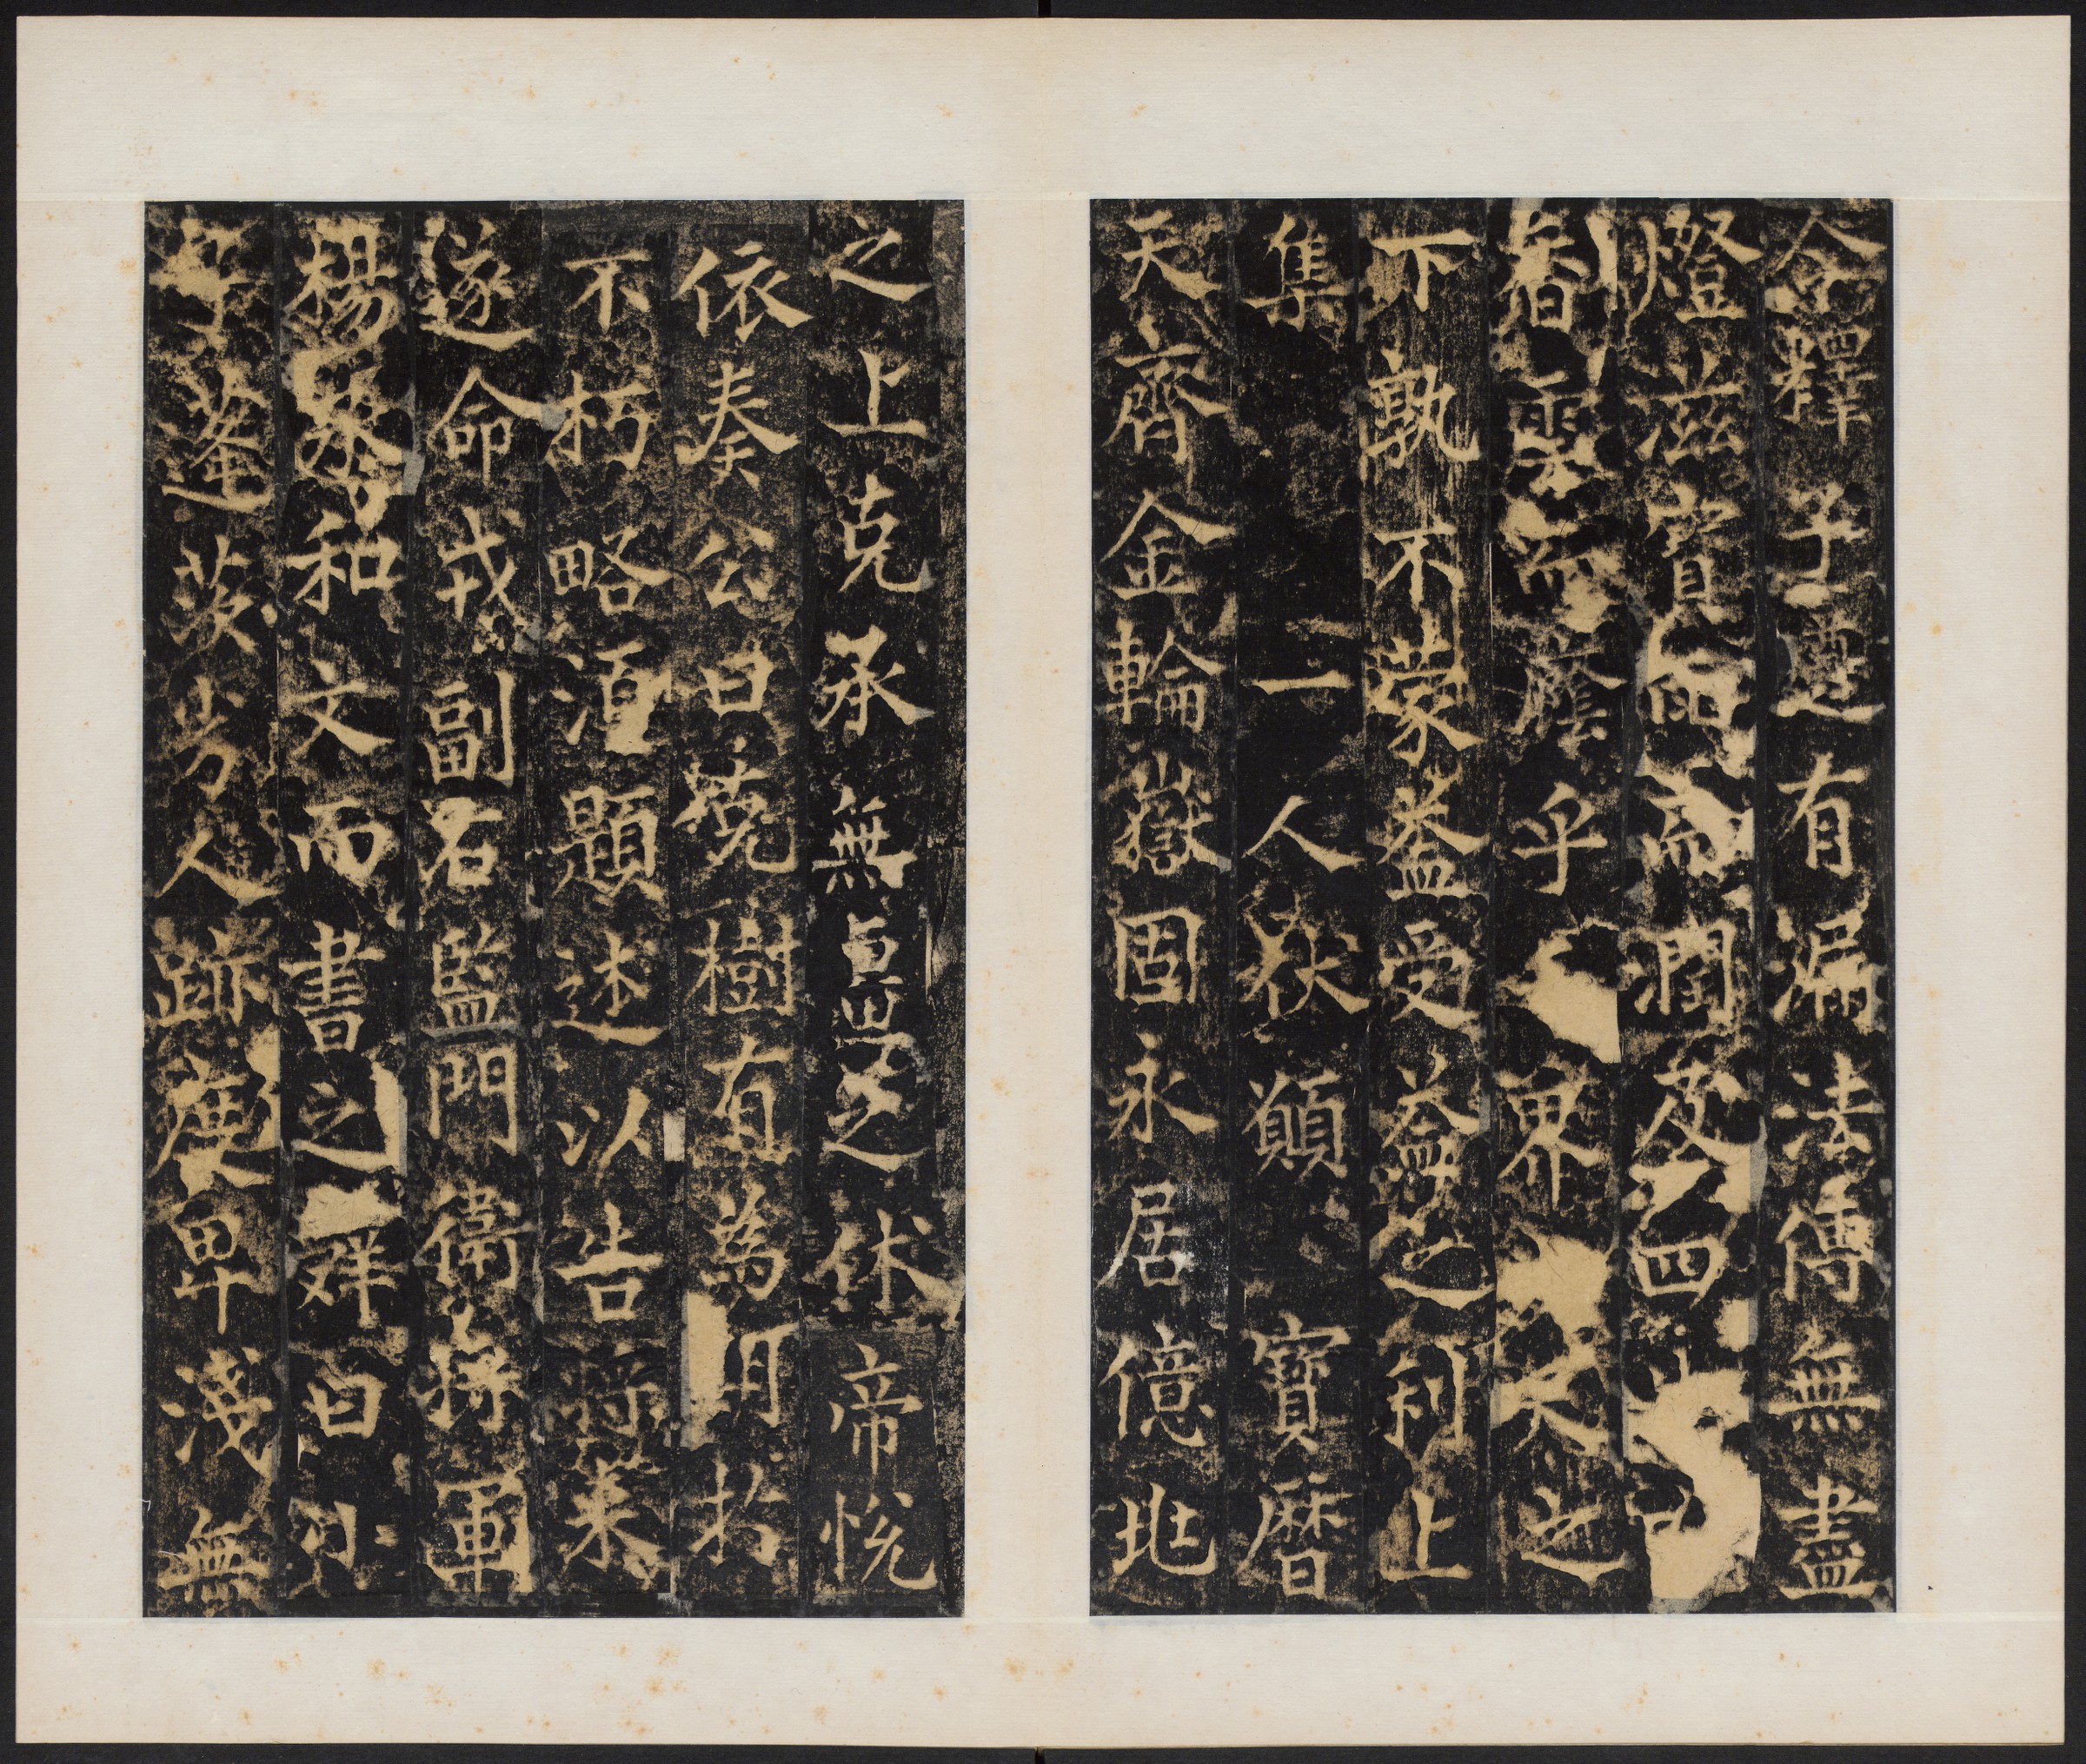 今釋子遷有漏法傳無盡
燈滋寶雨而潤及四
春雲而蔭乎界天之
下孰不蒙益受益之利上
集一人伏願寶曆
天齊金輪嶽固永居億兆
之上克承無畺之休帝悅
依奏公曰琬樹有爲用於
不朽略須題述以告將來
遂命戎副右監門衛將軍
楊承和文而書之辭曰
等蓬茨劣人跡庚卑淺無